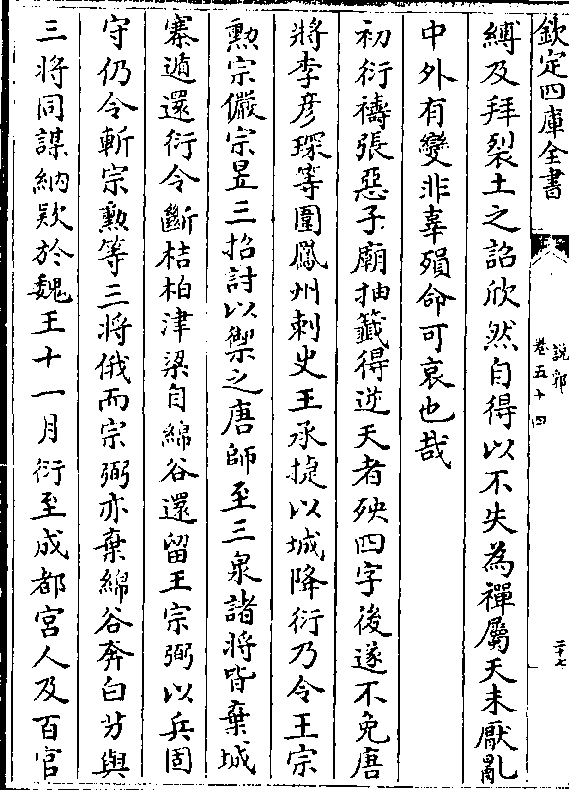 欽定四庫全書
說郛
卷五十四
二十七
縛及拜裂土之詔欣然自得以不失為禪屬天未厭亂
中外有變非辜殞命可哀也哉
初衍禱張惡子廟抽籤得逆天者殃四字後遂不免唐
將李彥琛等圍鳳州刺史王承捷以城降衍乃令王宗
勲宗儼宗昱三招討以禦之唐師至三泉諸將皆棄城
寨遁還衍令斷桔柏津梁自綿谷還留王宗弼以兵固
守仍令斬宗勲等三將俄而宗弼亦棄綿谷奔白芀與
三將同謀納欵於魏王十一月衍至成都宮人及百官